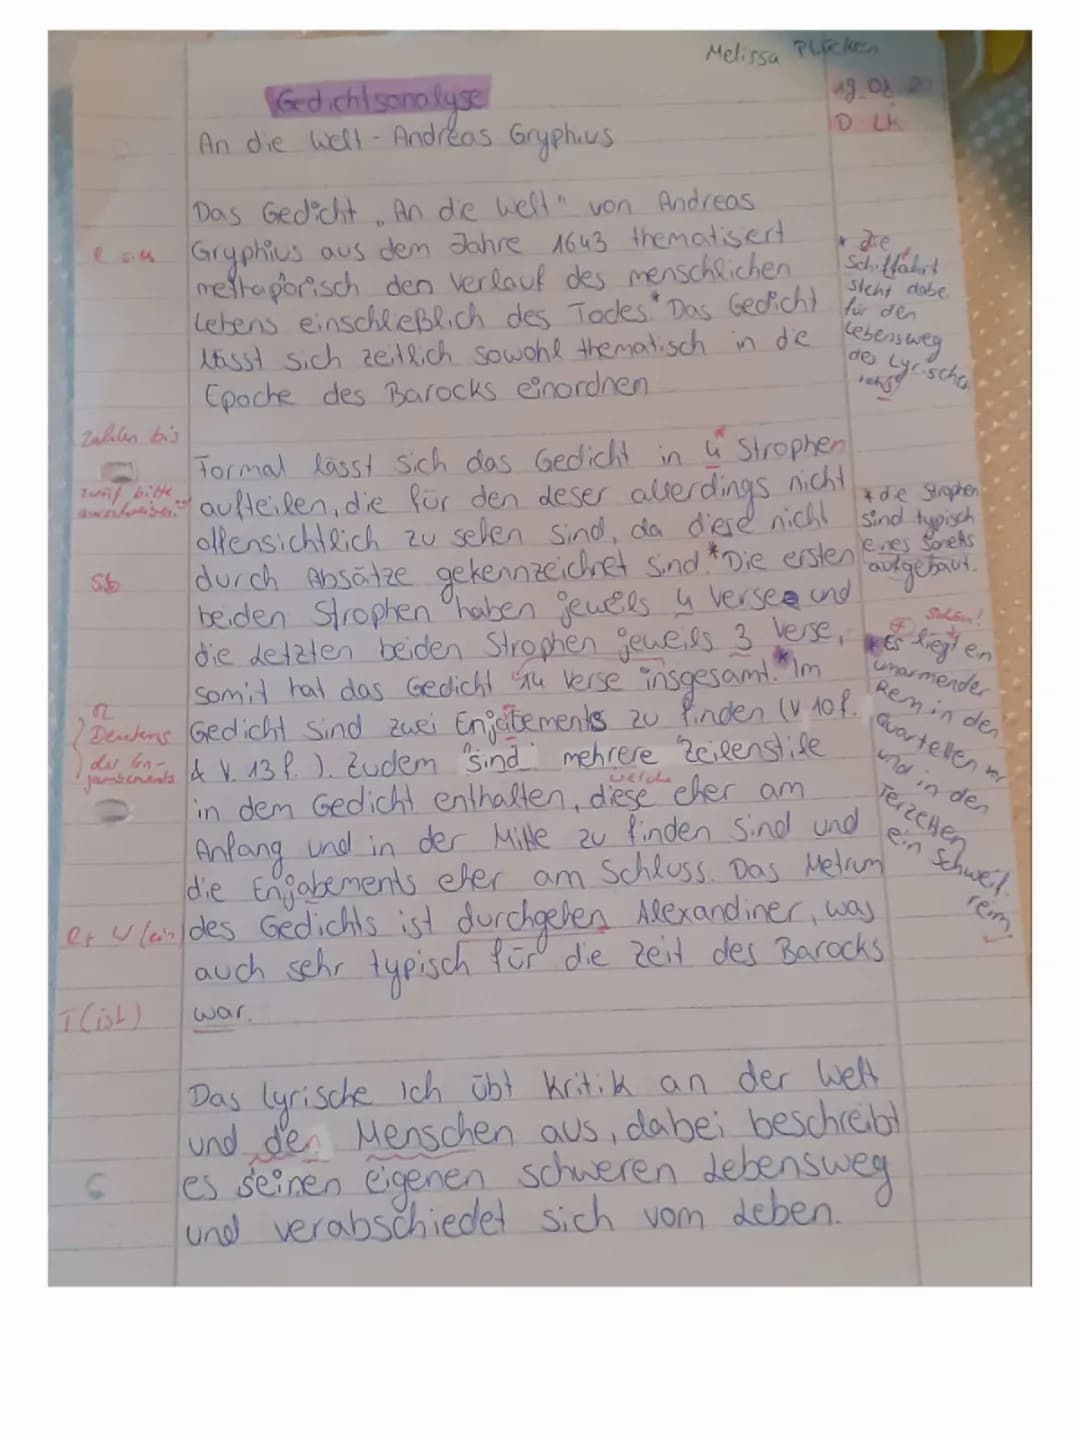 Melissa Plücken
19.08.20
D LK
Gedichtsanalyse
An die Welt - Andreas Gryphius
Das Gedicht „An die Welt" von Andreas
Gryphius aus dem Jahre 1643 thematisert
methaporisch den Verlauf des menschlichen
Lebens einschließlich des Todes.* Das Gedicht
lässt sich zeitlich sowohl thematisch in die
Epoche des Barocks einordnen
* die
Schifffahrt
steht dabei
für den
Lebensweg
des Lyrischen
Ichs
Zahlen bis
zwölf bitte
ausschreiben
Formal lässt sich das Gedicht in 4 Strophen
aufteilen, die für den Leser allerdings nicht
offensichtlich zu sehen sind, da diese nicht
durch Absätze gekennzeichnet sind.* Die ersten
beiden Strophen haben jeweils 4 Verse und
die letzten beiden Strophen jeweils 3 Verse,
somit hat das Gedicht 14 Verse insgesamt.* Im
Gedicht sind zwei Enjabements zu finden (V 10f.
& V. 13 f.). Zudem sind mehrere Zeilenstile
welche
in dem Gedicht enthalten, diese eher am
Anfang und in der Mitte zu finden sind und
die Enjabements eher am Schluss. Das Metrum
des Gedichts ist durchgehen Alexandiner, was
auch sehr typisch für die Zeit des Barocks
war.
* die Strophen
sind typisch
eines Sonetts
aufgebaut.
schön!
* Es liegt ein
umarmender
Reim in den
Quartetten vor
und in den
Terzetten
ein Schweif-
reim
Sb
Deutens
der En-
jambements
T (ist)
Das lyrische Ich übt Kritik an der Welt
und den Menschen aus, dabei beschreibt
es seinen eigenen schweren Lebensweg
und verabschiedet sich vom Leben.